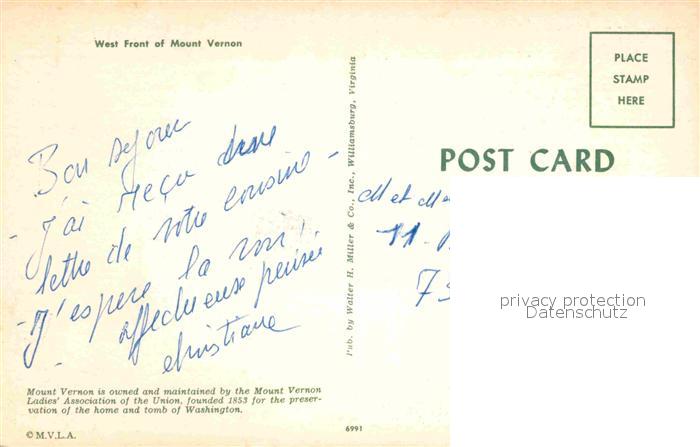 West Front of Mount Vernon
PLACE
STAMP
HERE
POST CARD
Bon séjour
- J'ai reçu une
lettre de votre cousine -
- J'espère la voir !
affectueuse pensée
Christiane
M et M
11
75
Pub. by Walter H. Miller & Co., Inc., Williamsburg, Virginia
privacy protection
Datenschutz
Mount Vernon is owned and maintained by the Mount Vernon
Ladies' Association of the Union, founded 1853 for the preser-
vation of the home and tomb of Washington.
© M.V.L.A.
6991